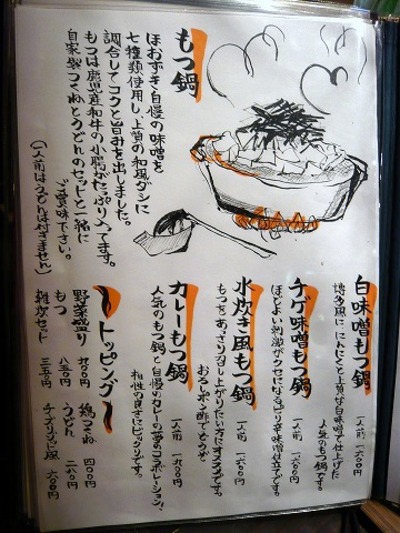 もつ鍋
ほおずき自慢の味噌を
七種類使用し、上質の和風ダシに
調合してコクと旨みを出しました。
もつは鹿児島産和牛の小腸がたっぷり入ってます。
自家製つくねとうどんのセットと一緒に
ご賞味下さい。
(一人前はうどんは付きません)
白味噌もつ鍋
一人前 一六〇〇
博多風に にんにくと上質な白味噌で仕上げた
人気のもつ鍋です。
チゲ味噌もつ鍋
一人前 一六〇〇
ほどよい刺激がクセになるピリ辛味噌仕立てです。
水炊き風もつ鍋
一人前 一六〇〇
もつをあっさり召し上がりたい方にオススメです。
おろし水と酢でどうぞ
カレーもつ鍋
一人前 一六〇〇
人気のもつ鍋と自慢のカレーの夢のコラボレーション、
相性の良さにビックリです。
トッピング
野菜盛り 九〇〇
もつ 八五〇
雑炊セット 三五〇
鶏つくね 四〇〇
うどん 二八〇
チーズリゾット風 六〇〇